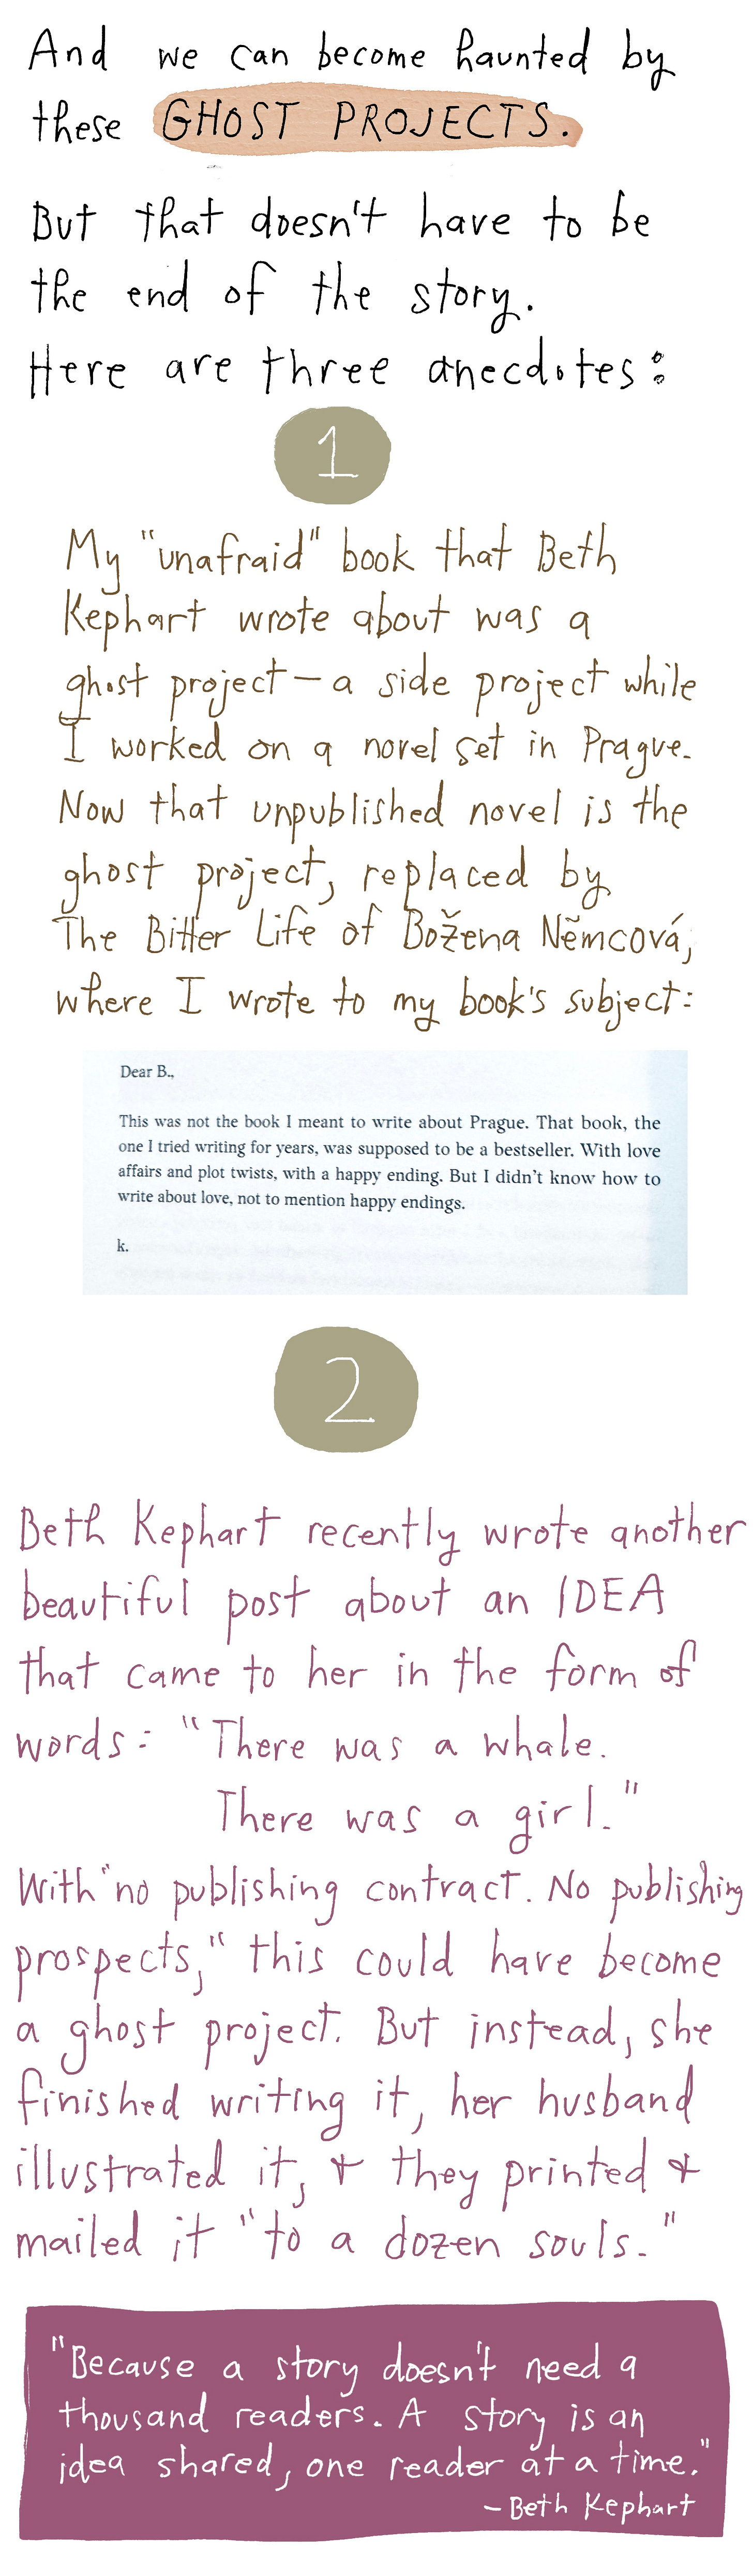 And we can become haunted by
these GHOST PROJECTS.
But that doesn't have to be
the end of the story.
Here are three anecdotes:
1
My "unafraid" book that Beth
Kephart wrote about was a
ghost project — a side project while
I worked on a novel set in Prague.
Now that unpublished novel is the
ghost project, replaced by
The Bitter Life of Božena Němcová,
where I wrote to my book's subject:
Dear B.,
This was not the book I meant to write about Prague. That book, the
one I tried writing for years, was supposed to be a bestseller. With love
affairs and plot twists, with a happy ending. But I didn't know how to
write about love, not to mention happy endings.
k.
2
Beth Kephart recently wrote another
beautiful post about an IDEA
that came to her in the form of
words: "There was a whale.
There was a girl."
With "no publishing contract. No publishing
prospects," this could have become
a ghost project. But instead, she
finished writing it, her husband
illustrated it, + they printed +
mailed it "to a dozen souls."
"Because a story doesn't need a
thousand readers. A story is an
idea shared, one reader at a time."
– Beth Kephart